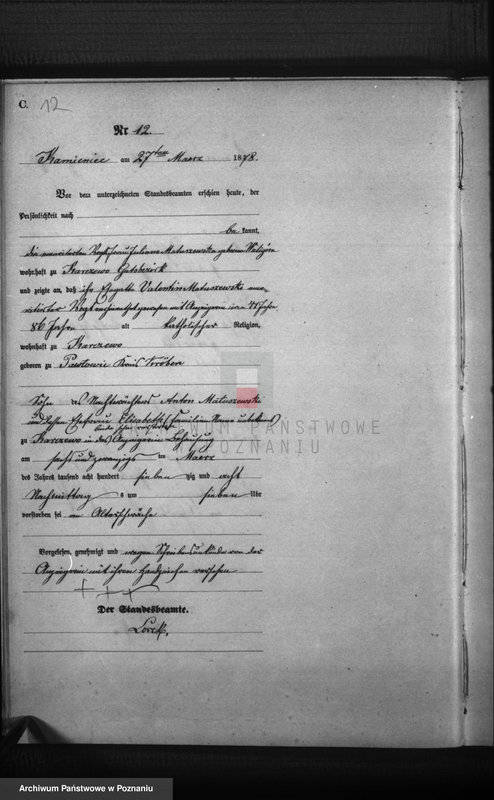 C. 12
Nr 12.
Kamieniec am 27ten Maerz 1878.
Vor dem unterzeichneten Standesbeamten erschien heute, der
Persönlichkeit nach
be kannt,
die Juliana Matuszewska geborene
wohnhaft zu Karczewo Gutsbezirk
und zeigte an, daß ihr Ehegatte Valentin Matuszewski
gewesen mit Anzeigerin Jahre
86 Jahre alt katholischer Religion,
wohnhaft zu Karczewo
geboren zu Pawłowice Kreis
Sohn des Nachtwächters Anton Matuszewski
und dessen Ehefrau Elisabeth Familien Name unbekannt
beide schon verstorben
zu Karczewo in der Anzeigerin Behausung
am sechs und zwanzigsten Maerz
des Jahres tausend acht hundert sieben zig und acht
Nachmittags um sieben Uhr
verstorben sei an Altersschwäche
Vorgelesen, genehmigt und wegen Schreibensunkunde von der
Anzeigerin mit ihrem Handzeichen versehen
+ + +
Der Standesbeamte.
ARCHIWUM PAŃSTWOWE
W POZNANIU
Archiwum Państwowe w Poznaniu